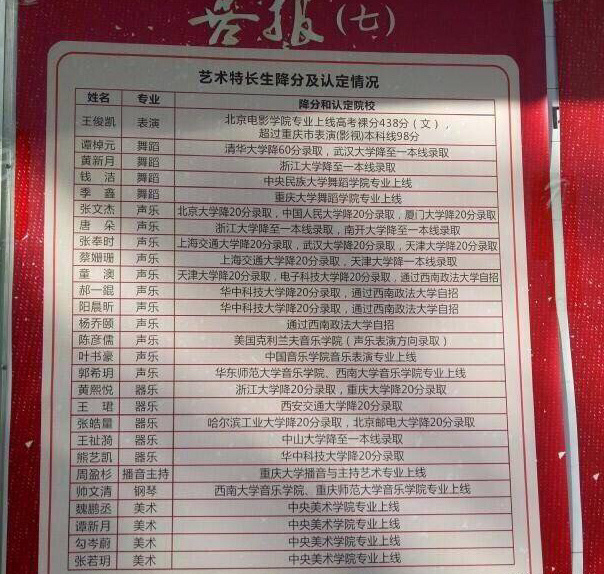 喜报(七)
艺术特长生降分及认定情况
姓名 专业 降分和认定院校
王俊凯 表演 北京电影学院专业上线高考裸分438分（文），
超过重庆市表演(影视)本科线98分
谭棹元 舞蹈 清华大学降60分录取，武汉大学降至一本线录取
黄新月 舞蹈 浙江大学降至一本线录取
钱洁 舞蹈 中央民族大学舞蹈学院专业上线
季鑫 舞蹈 重庆大学舞蹈学院专业上线
张文杰 声乐 北京大学降20分录取，中国人民大学降20分录取，厦门大学降20分录取
唐朵 声乐 浙江大学降至一本线录取，南开大学降至一本线录取
张奉时 声乐 上海交通大学降20分录取，武汉大学降20分录取，天津大学降20分录取
蔡姗珊 声乐 上海交通大学降20分录取，天津大学降一本线录取
童澳 声乐 天津大学降20分录取，电子科技大学降20分录取，通过西南政法大学自招
郝一锟 声乐 华中科技大学降20分录取，通过西南政法大学自招
阳晨昕 声乐 华中科技大学降20分录取，通过西南政法大学自招
杨乔颐 声乐 通过西南政法大学自招
陈彦儒 声乐 美国克利兰夫音乐学院（声乐表演方向录取）
叶书豪 声乐 中国音乐学院音乐表演专业上线
郭希玥 声乐 华东师范大学音乐学院、西南大学音乐学院专业上线
黄熙悦 器乐 浙江大学降20分录取，重庆大学降20分录取
王珺 器乐 西安交通大学降20分录取
张皓量 器乐 哈尔滨工业大学降20分录取，北京邮电大学降20分录取
王祉漪 器乐 中山大学降至一本线录取
熊艺凯 器乐 华中科技大学降20分录取
周盈杉 播音主持 重庆大学播音与主持艺术专业上线
帅文清 钢琴 西南大学音乐学院、重庆师范大学音乐学院专业上线
魏鹏丞 美术 中央美术学院专业上线
谭新月 美术 中央美术学院专业上线
勾岑蔚 美术 中央美术学院专业上线
张若玥 美术 中央美术学院专业上线